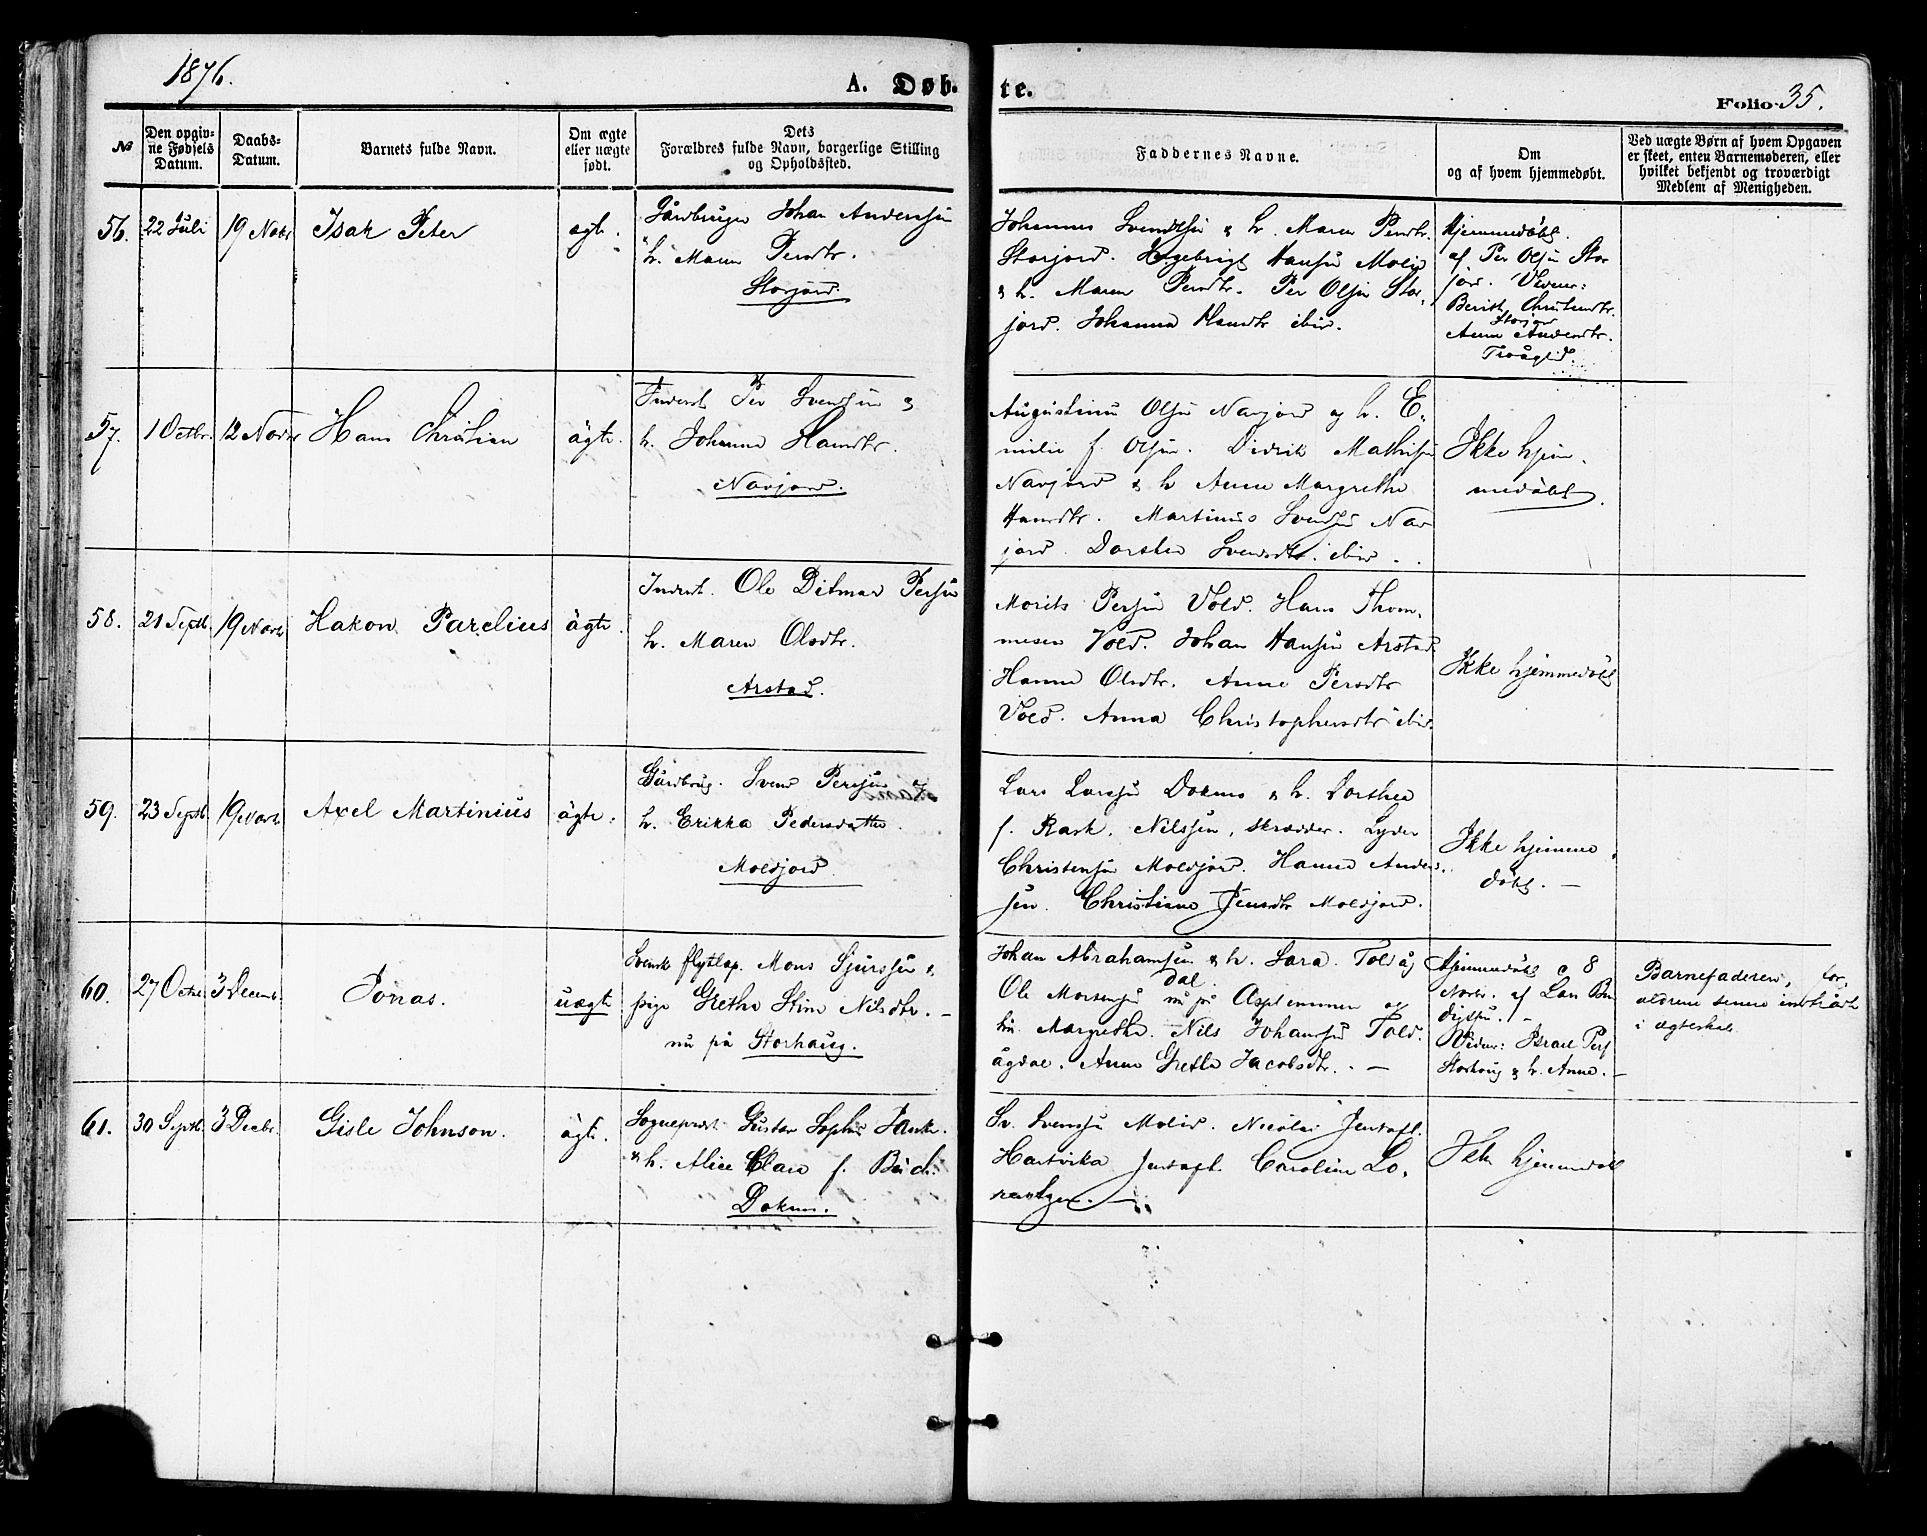 1876.
A. Døb-
te.
Folio 35.
№
Den opgiv-
ne Fødsels
Datum.
Daabs-
Datum.
Barnets fulde Navn.
Om ægte
eller uægte
født.
Dets
Forældres fulde Navn, borgerlige Stilling
og Opholdssted.
Faddernes Navne.
Om
og af hvem hjemmedøbt.
Ved uægte Børn af hvem Opgaven
er skeet, enten Barnemøderen, eller
hvilket bekjendt og troværdigt
Medlem af Menigheden.
56.
22 Juli
19 Novbr
Isak Peter
ægte.
Gårdbruger Johan Andersen
h. Maren Persdtr.
Storjord.
Johannes Svendsen & h. Maren Persdtr.
Storjord. Ingebrigt Hansen Molid
& h. Maren Persdtr. Per Olsen Stor-
jord. Johanna Hansdtr ibid.
Hjemmedøbt.
af Per Olsen Stor
jord. Vidner:
Berith Christensdtr.
Storjord
Anne Andersdtr.
57.
1 Octbr.
12 Novbr
Hans Christian
ägte.
Inderst Per Svendsen &
h. Johanna Hansdtr.
Navjord.
Augustinus Olsen Navjord og h. E-
milie f. Olsen. Didrik Mathisen
Navjord & h Anne Margrethe
Hansdtr. Martinus Svendsen Nav
jord. Dorthea Svendsdtr. ibid.
Ikke hjem-
medøbt.
58.
21 Septb.
19 Novb
Hakon Parelius
ägte.
Inderst. Ole Ditmar Persen
h. Maren Olsdtr.
Arstad.
Morits Persen Vold. Hans Thom-
mesen Vold. Johan Hansen Arstad
Hanna Olsdtr. Anne Persdtr
Vold. Anna Christophersdtr ibid.
Ikke hjemmedöbt
59.
23 Septb.
19 Novb.
Axel Martinius
ägte.
Gårdbrug. Svend Persen
h. Erikka Pedersdatter.
Moldjord
Lars Larsen Doknes & h. Dorthea
f. Rask. Nilssen, skrædder. Lyder
Christensen Moldjord. Hanna Ander-
sen. Christiane Jensdtr Moldjord.
Ikke hjemme-
döbt. —
60.
27 Octbr
3 Decemb.
Jonas.
uægte
Svensk flytlap. Mons Sjurssen &
pige Grethe Stina Nilsdtr. —
nu på Storhaug.
Johan Abrahamsen & h. Sara. Toldåg
dal.
Ole Mortensen nu på og
h. Margrethe. Nils Johansen Told-
ågdal. Anne Grethe Jacobsdtr. —
Hjemmedøbt 8
Novbr. af Lars Ben
digtsen. —
Vidner: Israel Pers
Storhaug & h. Anne. —
Barnefaderen, for-
ældrene senere indtrådt
i ægteskab
61.
30 Septb.
3 Decbr.
Gisle Johnson.
ägte.
Sogneprest Gustav Sophus Tank.
& h. Alice Clara f. Buch.
Doknes.
Sv. Svensen Molid. Nicolai Jentoft.
Hartvika Jentoft. Caroline Lo-
rentzen. —
Ikke hjemmedöbt